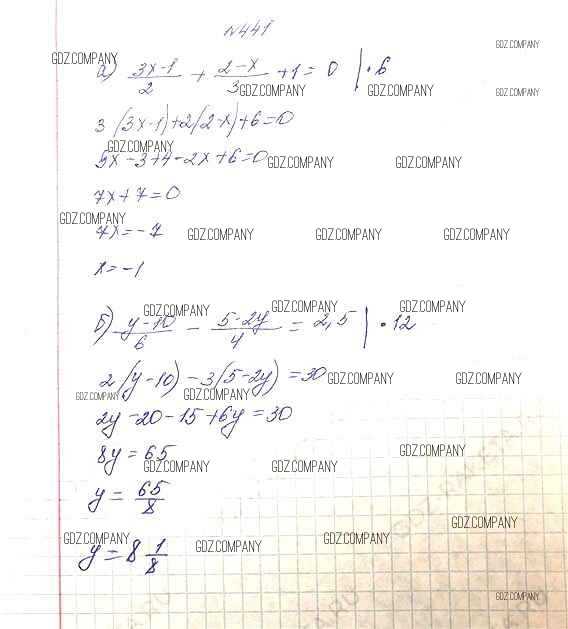 N441
а) (3x-1)/2 + (2-x)/3 + 1 = 0 | · 6
3(3x-1)+2(2-x)+6=0
9x-3+4-2x+6=0
7x+7=0
7x=-7
x=-1
б) (y-10)/6 - (5-2y)/4 = 2,5 | · 12
2(y-10)-3(5-2y)=30
2y-20-15+6y=30
8y=65
y=65/8
y=8 1/8
GDZ.COMPANY GDZ.COMPANY
GDZ.COMPANY GDZ.COMPANY GDZ.COMPANY
GDZ.COMPANY GDZ.COMPANY GDZ.COMPANY
GDZ.COMPANY GDZ.COMPANY GDZ.COMPANY GDZ.COMPANY
GDZ.COMPANY GDZ.COMPANY GDZ.COMPANY
GDZ.COMPANY GDZ.COMPANY GDZ.COMPANY GDZ.COMPANY
GDZ.COMPANY GDZ.COMPANY GDZ.COMPANY
GDZ.COMPANY GDZ.COMPANY GDZ.COMPANY GDZ.COMPANY
GDZ.COMPANY